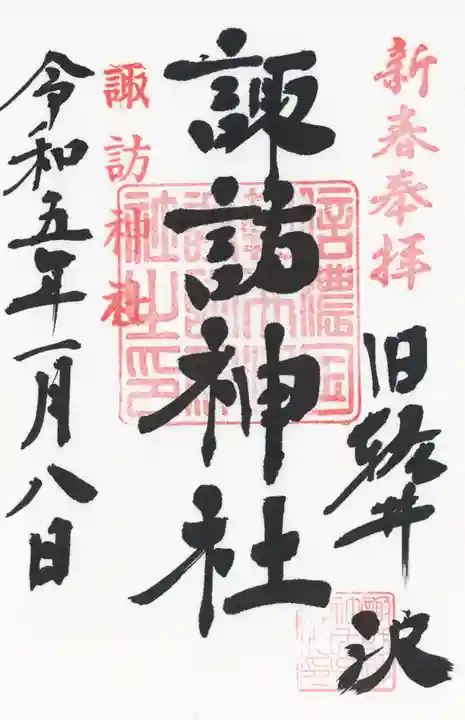 新春奉拝
旧軽井沢
諏訪神社
諏訪神社
令和五年一月八日